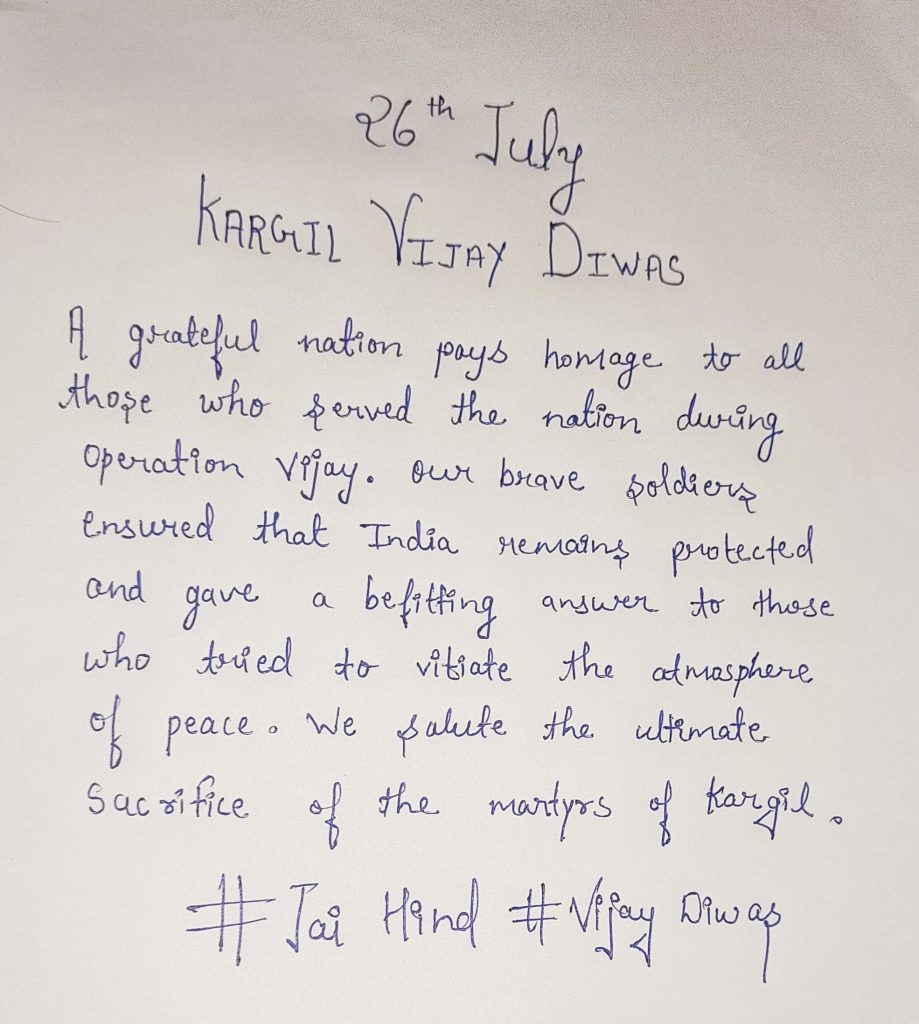 26th July
KARGIL VIJAY DIWAS
A grateful nation pays homage to all
those who served the nation during
Operation Vijay. Our brave soldiers
ensured that India remains protected
and gave a befitting answer to those
who tried to vitiate the atmosphere
of peace. We salute the ultimate
Sacrifice of the martyrs of Kargil.
# Jai Hind # Vijay Diwas